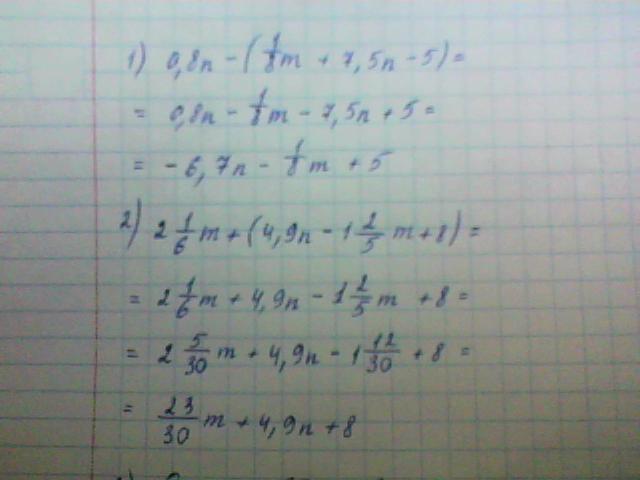 1) 0,8n - (1/8m + 7,5n - 5) =
= 0,8n - 1/8m - 7,5n + 5 =
= - 6,7n - 1/8m + 5
2) 2 1/6 m + (4,9n - 1 2/5 m + 8) =
= 2 1/6 m + 4,9n - 1 2/5 m + 8 =
= 2 5/30 m + 4,9n - 1 12/30 + 8 =
= 23/30 m + 4,9n + 8